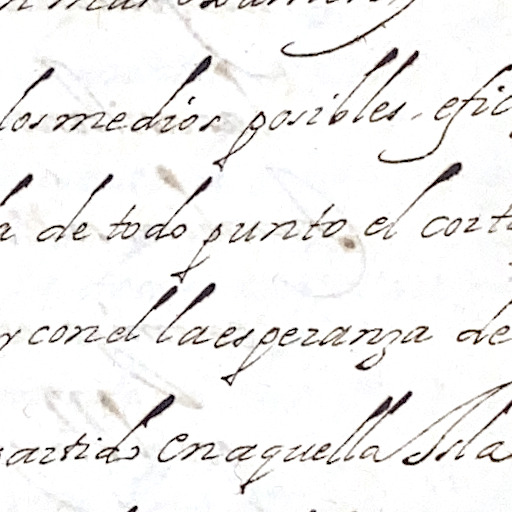 los medios posibles, efic
a de todo punto el cort
y con el la esperanza de
partido en aquella Isla